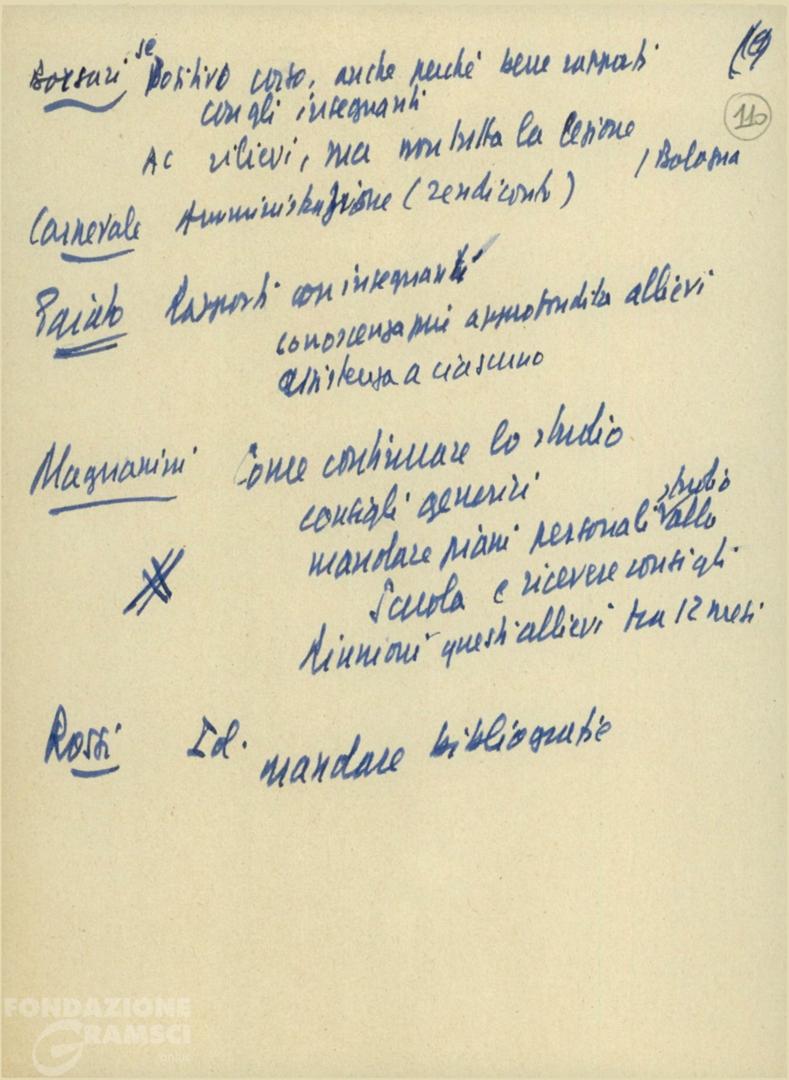 Borsari se Positivo corso, anche perché bene rapporti
con gli insegnanti
110
Ac rilievi, ma non tutta la lezione
/ Bologna
Carnevale Amministrazione (rendiconto)
Rapporti con insegnanti
conoscenza più approfondita allievi
assistenza a ciascuno
Magnanini Come continuare lo studio
consigli generici
studio
mandare piani personali alla
Scuola e ricevere consigli
Riunioni questi allievi tra 12 mesi
Rossi Id. mandare bibliografie
FONDAZIONE
GRAMSCI
onlus